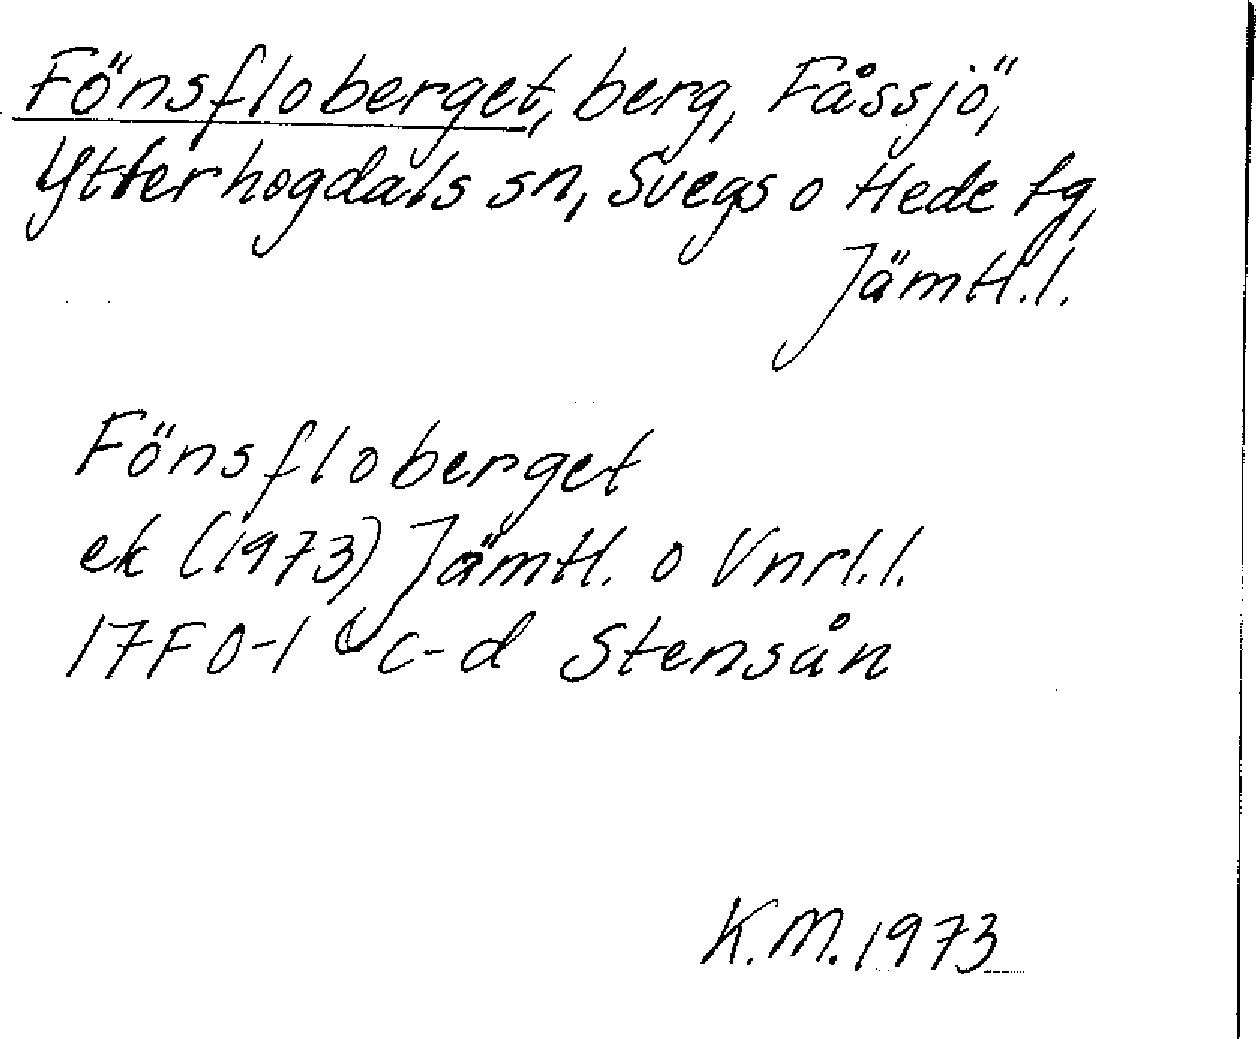 Fönsfloberget, berg, Fåssjö,
Ytterhogdals sn, Svegs o Hede tg,
Jämtl.l.
Fönsfloberget
ek (1973) Jämtl. o Vnrl.l.
17F 0-1 c-d Stensån
K.M. 1973